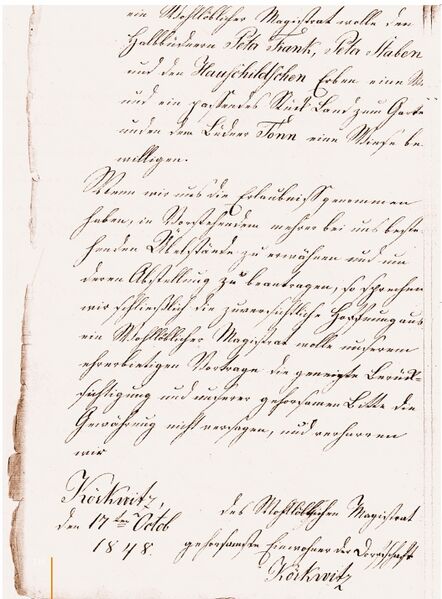 ein Wohllöblicher Magistrat wolle den
Halbbüdnern Peta Frank, Peta Staben
und den Hauschildtschen Erben eine
und ein passendes Stück Land zum Garte
und dem Büdner Tonn eine Wiese be
willigen.
Wenn wir uns die Erlaubniß genommen
haben, in Vorstehendem mehrer bei uns beste-
henden Übelstände zu erwähnen und um
deren Abstellung zu beantragen, so sprechen
wir schließlich die zuversichtliche Hoffnung aus
ein Wohllöblicher Magistrat wolle unserem
ehrerbietigen Vortrage die geneigte Berück-
sichtigung und unserer gehorsamen Bitte die
Gewährung nicht versagen, und verharren
wir
Körkwitz,
den 17ten Octob
1848.
des Wohllöblichen Magistrat
gehorsamste Einwohner der Dorfschaft
Körkwitz